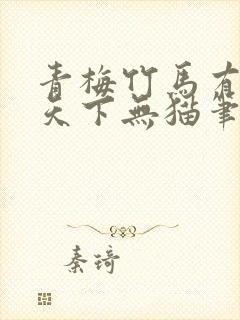 青梅竹馬有
天下無貓筆
秦琦